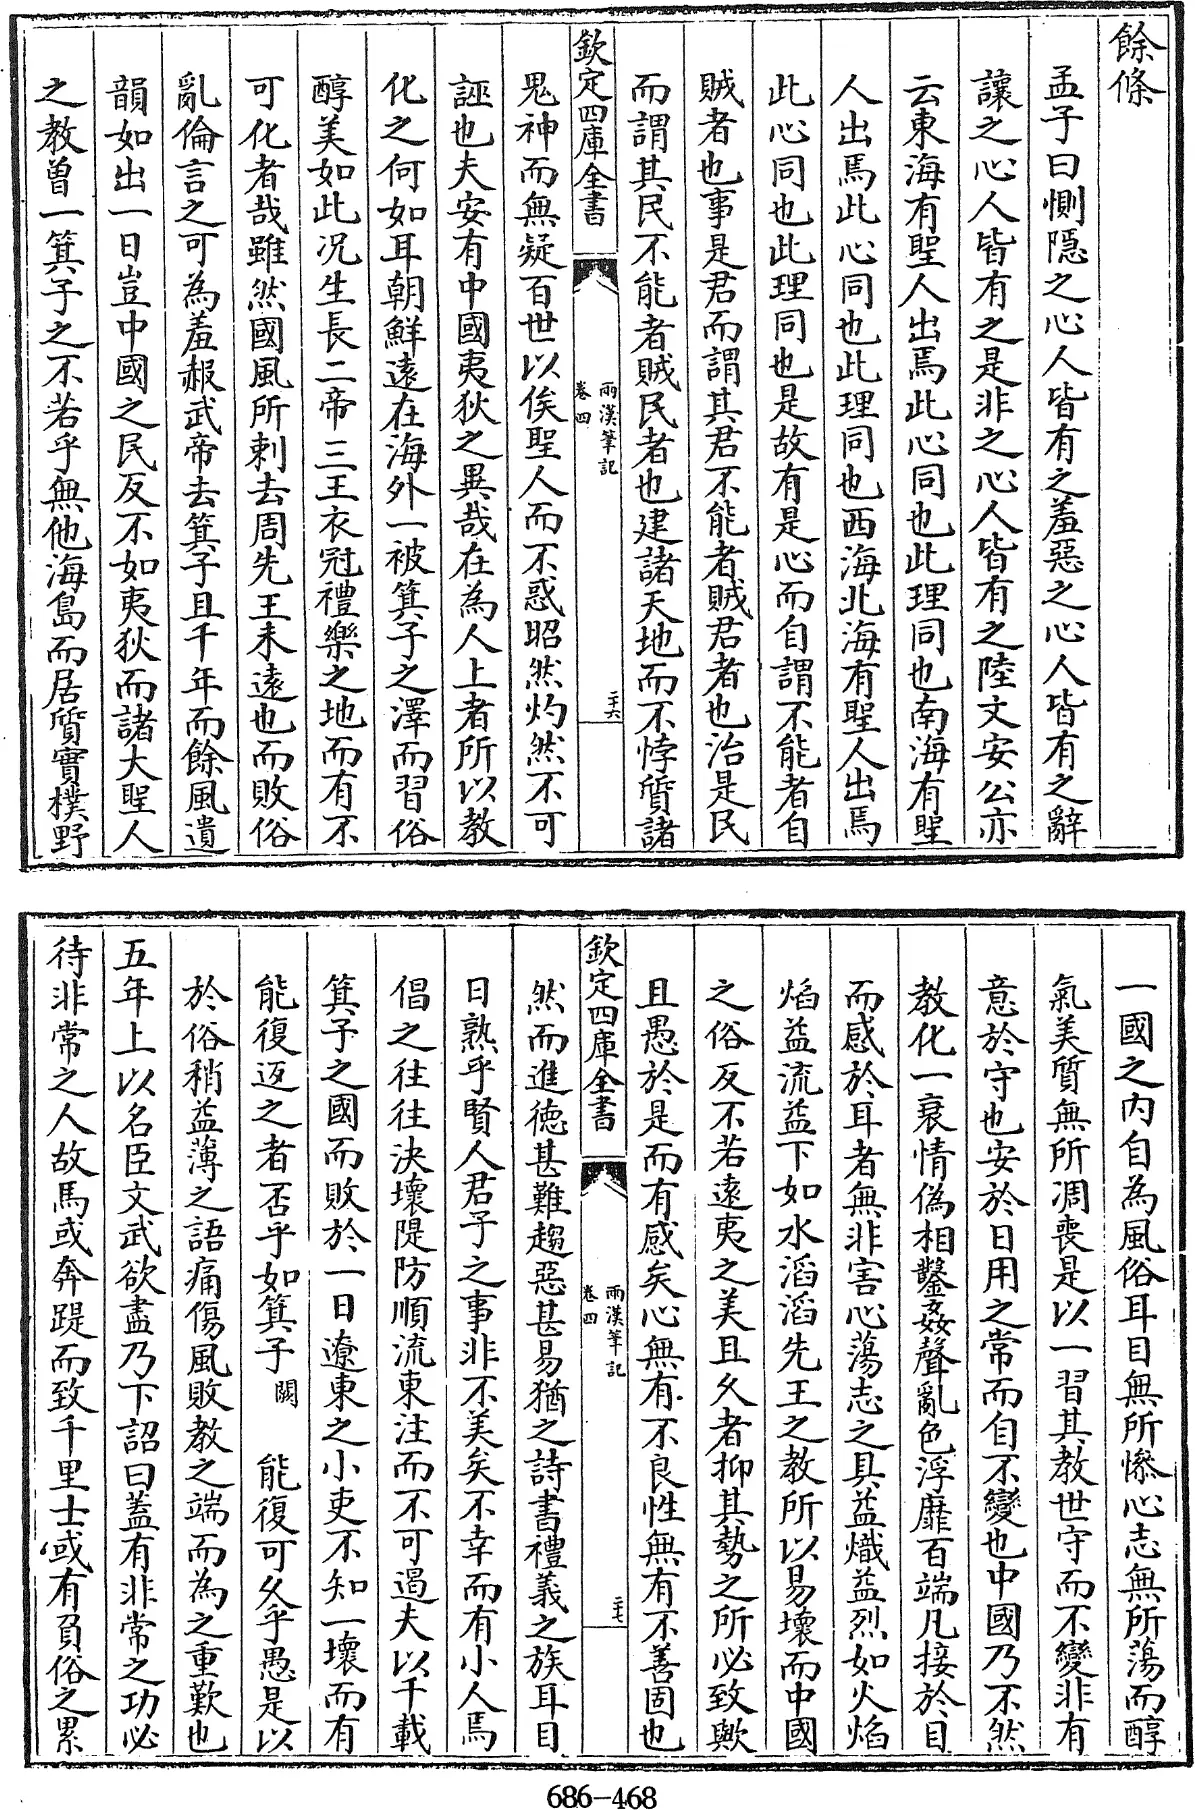 餘條
孟子曰惻隱之心人皆有之羞惡之心人皆有之辭
讓之心人皆有之是非之心人皆有之陸文安公亦
云東海有聖人出焉此心同也此理同也南海有聖
人出焉此心同也此理同也西海北海有聖人出焉
此心同也此理同也是故有是心而自謂不能者自
賊者也事是君而謂其君不能者賊君者也治是民
而謂其民不能者賊民者也建諸天地而不悖質諸
欽定四庫全書
兩漢筆記
卷四
二十六
鬼神而無疑百世以俟聖人而不惑昭然灼然不可
誣也夫安有中國夷狄之異哉在為人上者所以教
化之何如耳朝鮮遠在海外一被箕子之澤而習俗
醇美如此况生長二帝三王衣冠禮樂之地而有不
可化者哉雖然國風所刺去周先王未遠也而敗俗
亂倫言之可為羞赧武帝去箕子且千年而餘風遺
韻如出一日豈中國之民反不如夷狄而諸大聖人
之教曾一箕子之不若乎無他海島而居質實樸野
一國之內自為風俗耳目無所慘心志無所蕩而醇
氣美質無所凋喪是以一習其教世守而不變非有
意於守也安於日用之常而自不變也中國乃不然
教化一衰情偽相鑿姦聲亂色浮靡百端凡接於目
而感於耳者無非害心蕩志之具益熾益烈如火焰
焰益流益下如水滔滔先王之教所以易壞而中國
之俗反不若遠夷之美且久者抑其勢之所必致歟
且愚於是而有感矣心無有不良性無有不善固也
欽定四庫全書
兩漢筆記
卷四
二十七
然而進德甚難趨惡甚易猶之詩書禮義之族耳目
日熟乎賢人君子之事非不美矣不幸而有小人焉
倡之往往決壞隄防順流東注而不可遏夫以千載
箕子之國而敗於一日遼東之小吏不知一壞而有
能復返之者否乎如箕子闕能復可久乎愚是以
於俗稍益薄之語痛傷風敗教之端而為之重歎也
五年上以名臣文武欲盡乃下詔曰蓋有非常之功必
待非常之人故馬或奔踶而致千里士或有負俗之累
686-468